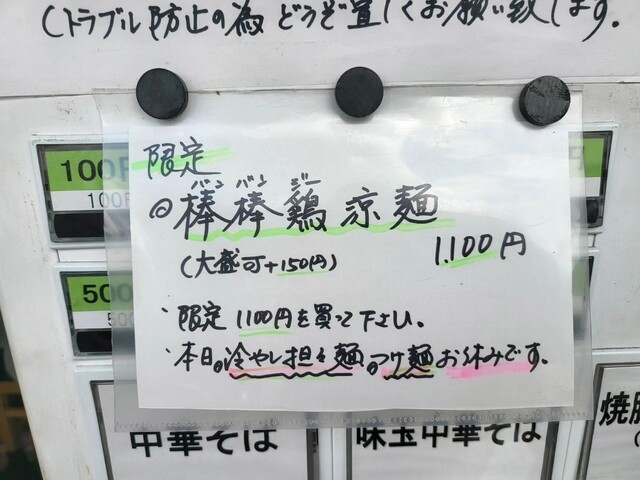 (トラブル防止の為 どうぞ宜しくお願い致します。
限定
バン バン ジー
◎棒棒鶏涼麺
1.100円
(大盛可+150円)
・限定 1100円を買って下さい。
・本日、冷やし担々麺、つけ麺お休みです。
100円
100円
500
500
中華そば
味玉中華そば
焼豚